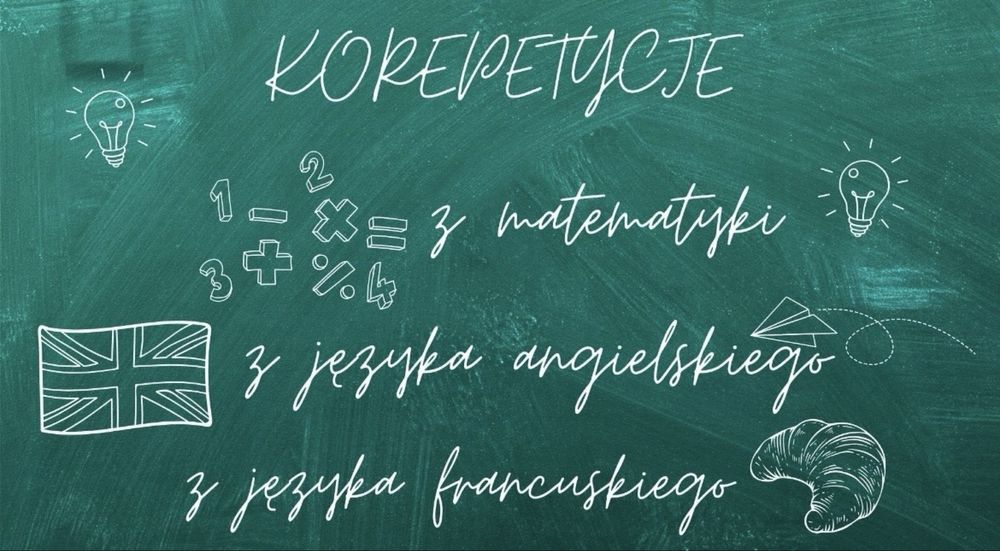 KOREPETYCJE
1 - 2 × =
3 + % 4
z matematyki
z języka angielskiego
z języka francuskiego